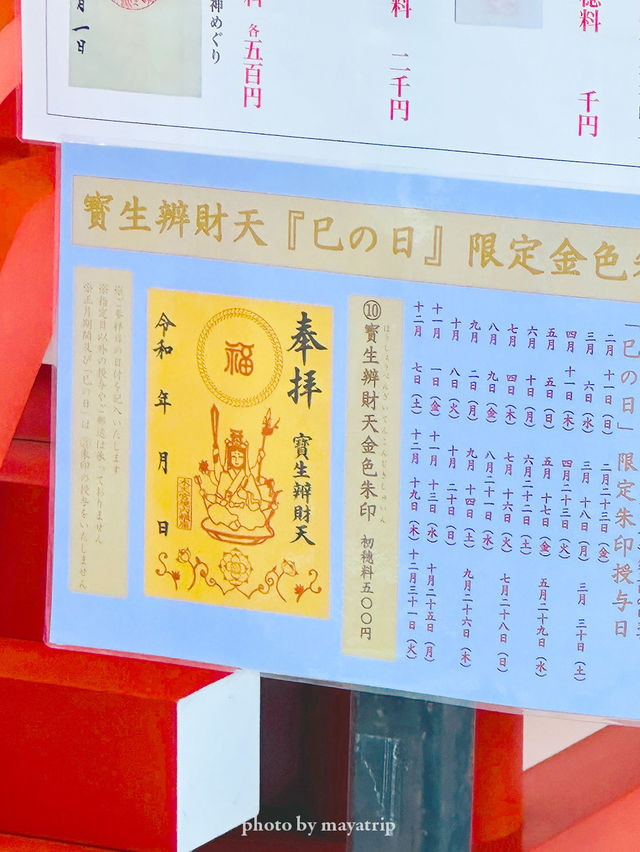 穂料 千円
料 二千円
料 各五百円
神めぐり
月一日
寳生辨財天『巳の日』限定金色
「巳の日」限定朱印授与日
二月 十一日（日） 二月二十三日（金）
三月 六日（水） 三月 十八日（月） 三月 三十日（土）
四月 十一日（木） 四月二十三日（火）
五月 五日（日） 五月 十七日（金） 五月二十九日（水）
六月 十日（月） 六月二十二日（土）
七月 四日（木） 七月 十六日（火） 七月二十八日（日）
八月 九日（金） 八月二十一日（水）
九月 二日（月） 九月 十四日（土） 九月二十六日（木）
十月 八日（火） 十月 二十日（日）
十一月 一日（金） 十一月 十三日（水） 十一月二十五日（月）
十二月 七日（土） 十二月 十九日（木） 十二月三十一日（火）
⑩寳生辨財天金色朱印 初穂料五〇〇円
ほうしょうべんざいてんこんじきしゅいん
奉拝 寳生辨財天
福
令和 年 月 日
※ご参拝日の日付を記入いたします
※指定日以外の授与やご郵送は承っておりません
※正月期間及び「巳の日」は 朱印の授与をいたしません
photo by mayatrip